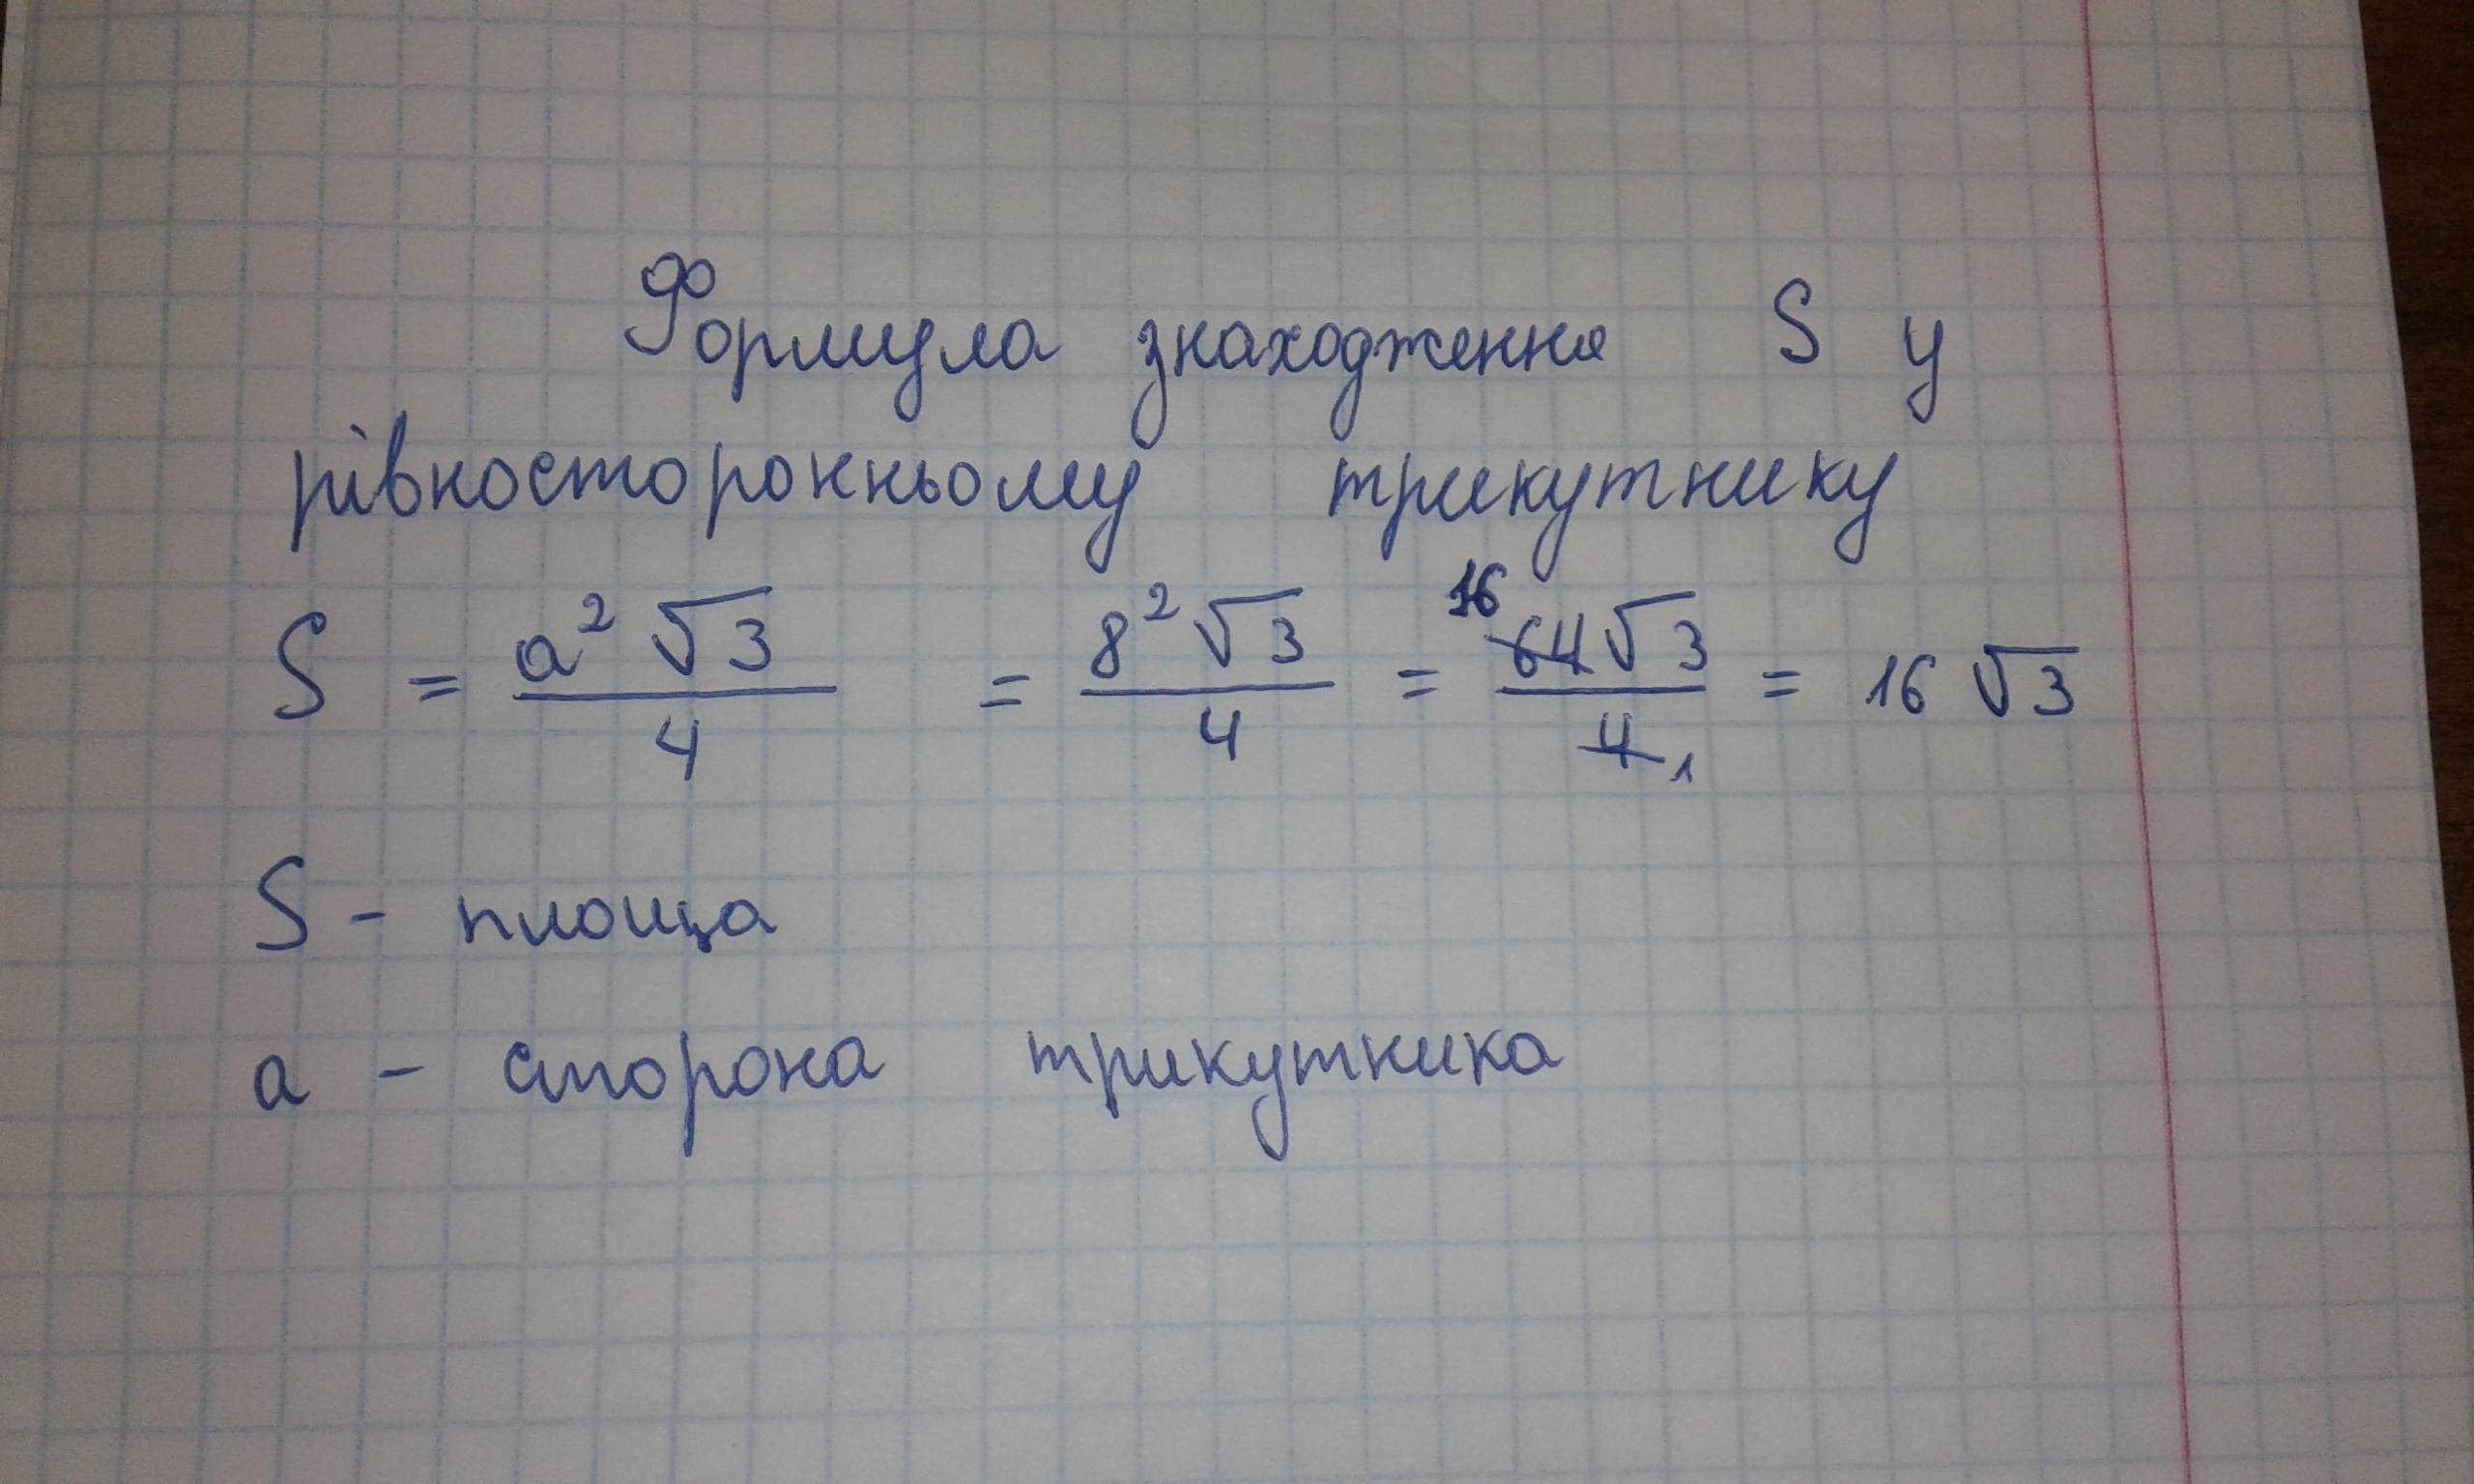 Формула знаходження S у
рівносторонньому трикутнику
S = a² √3 / 4 = 8² √3 / 4 = 16 64 √3 / 4 1 = 16 √3
S - площа
a - сторона трикутника